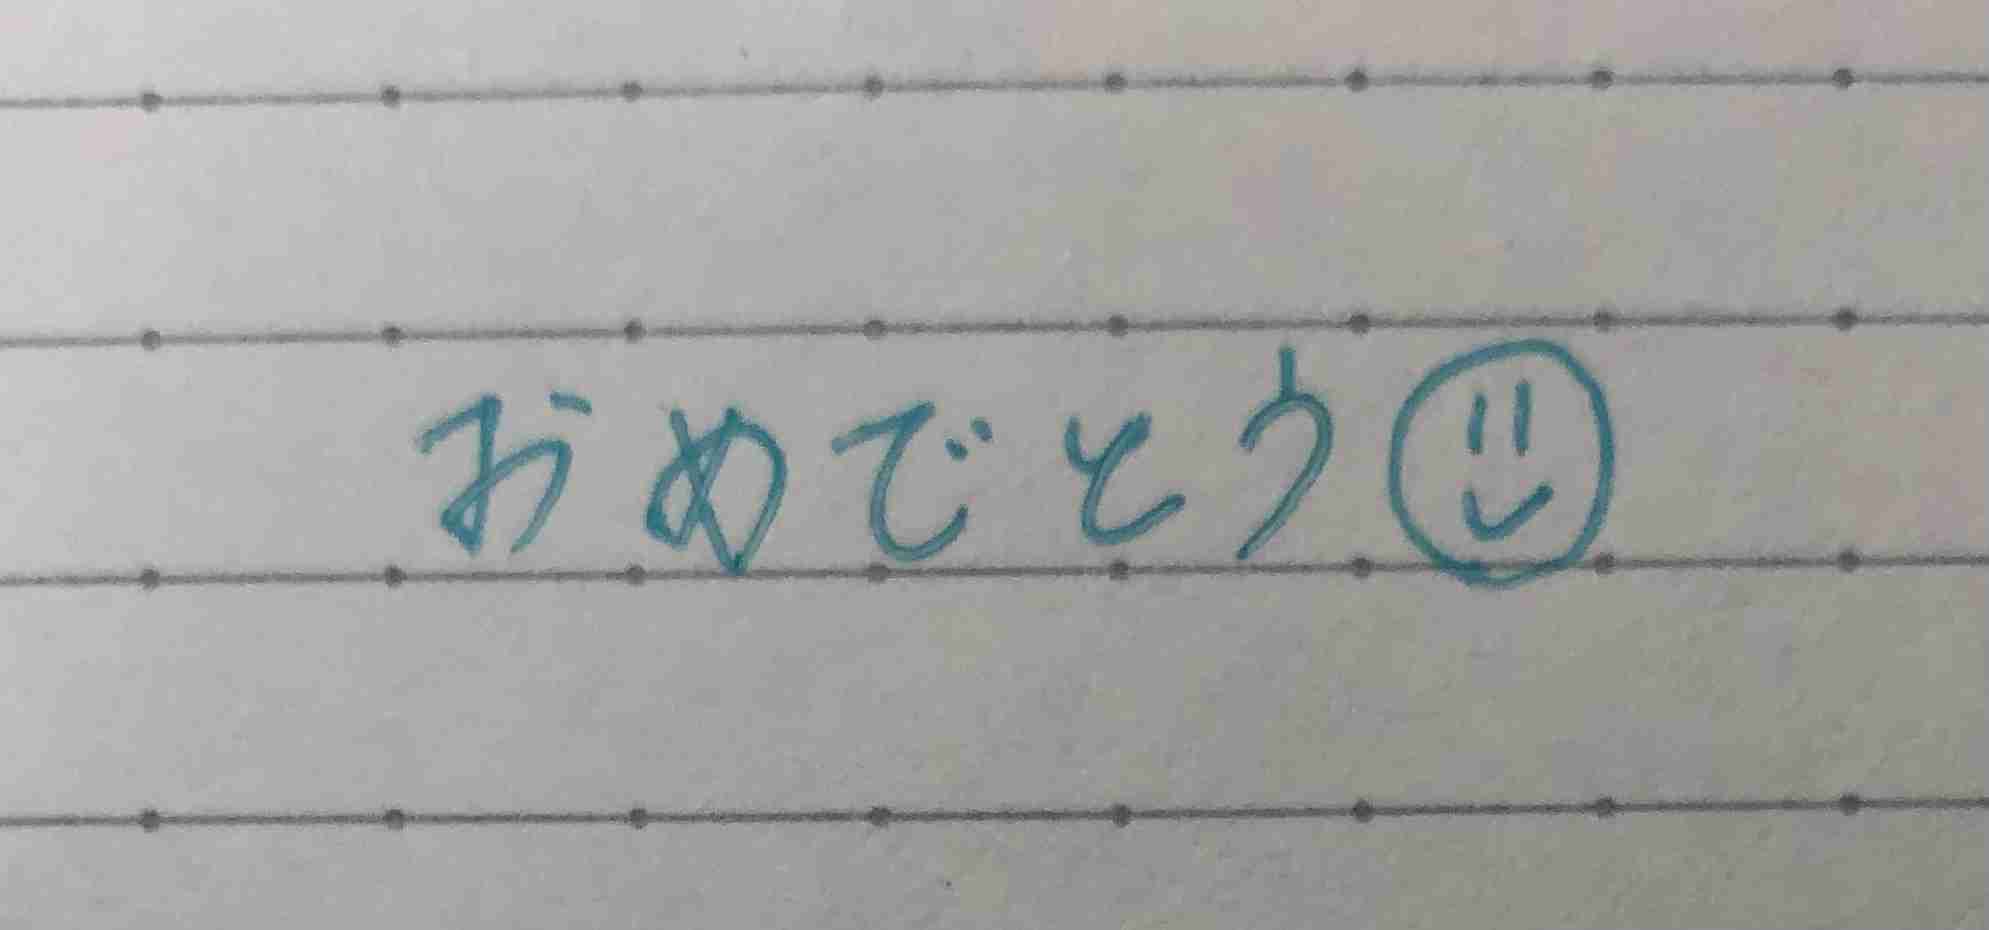 おめでとう☺